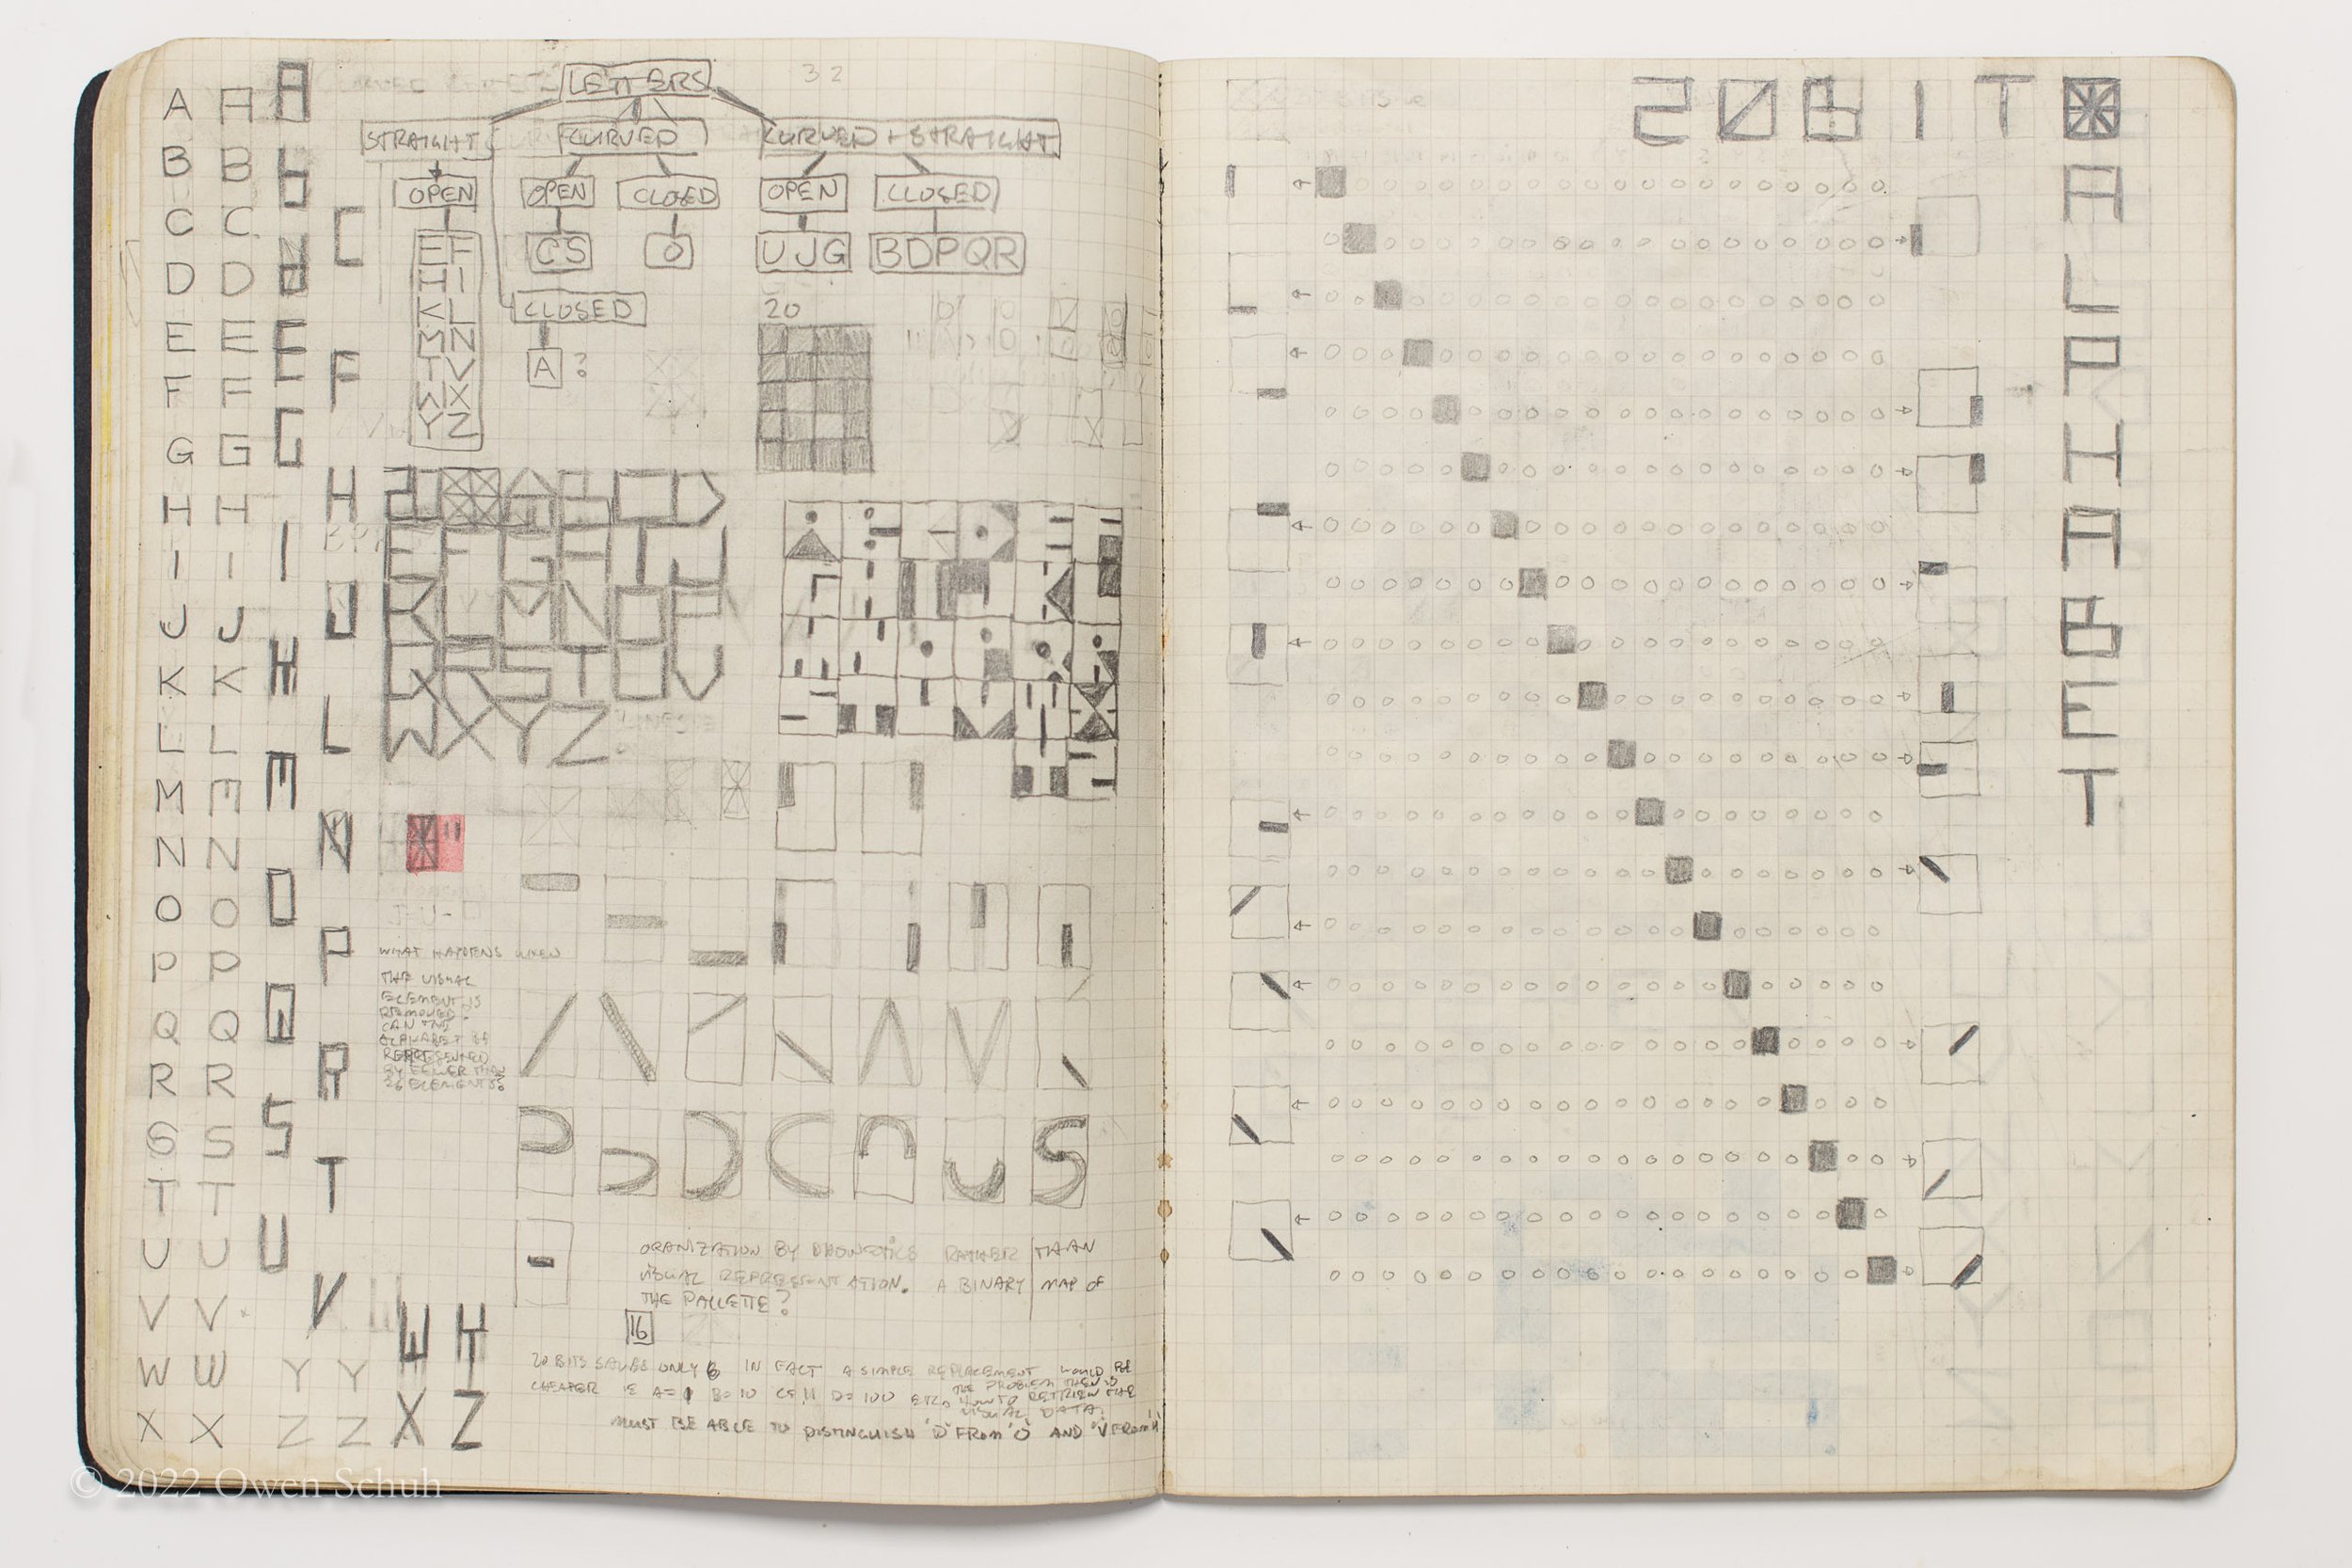 LETTERS
32
STRAIGHT
CURVED
CURVED + STRAIGHT
OPEN
OPEN
CLOSED
OPEN
CLOSED
EF
HI
KL
MN
TV
WX
YZ
CS
O
UJG
BDPQR
CLOSED
A ?
20
A A A
B B b
C C C
D D d
E E E
F F F
G G G
H H H
I I I
J J J
K K K
L L L
M M M
N N N
O O O
P P P
Q Q Q
R R R
S S S
T T T
U U U
V V V
W W W
X X X
Y Y
Z Z Z
E F G H I J
K L M N O P
Q R S T U V
W X Y Z
WHAT HAPPENS WHEN
THE VISUAL
ELEMENT IS
REMOVED.
CAN THE
ALPHABET BE
REPRESENTED
BY FEWER THAN
26 ELEMENTS?
ORANIZATION BY RATHER THAN
VISUAL REPRESENTATION. A BINARY MAP OF
THE PALLETTE?
16
20 BITS SAVES ONLY 6 IN FACT A SIMPLE REPLACEMENT WOULD BE
CHEAPER IE A=1 B=10 C=11 D=100 ETC.
THE PROBLEM THEN IS
HOW TO RETRIEVE THE
VISUAL DATA.
MUST BE ABLE TO DISTINGUISH 'D' FROM 'O' AND 'V' FROM 'U'
20 BIT
A
L
P
H
A
B
E
T
© 2022 Owen Schuh